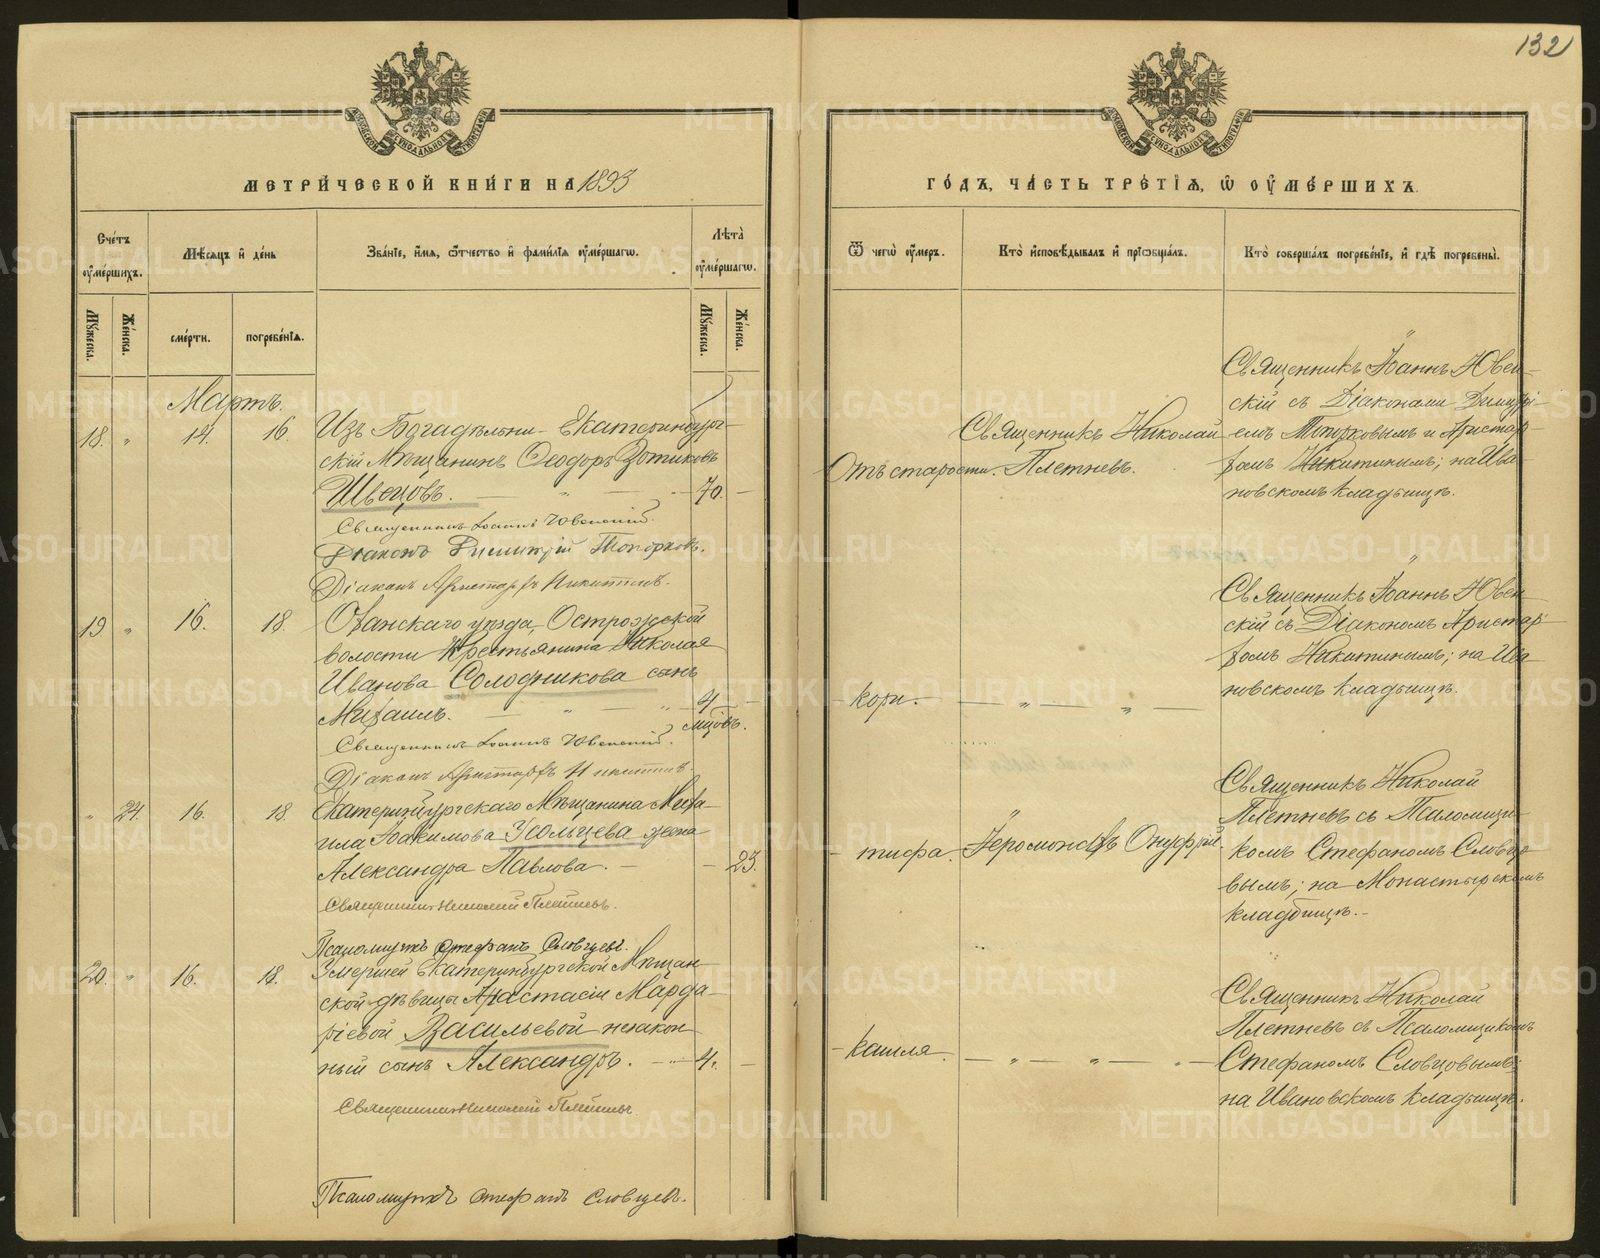 132
МЕТРИ́ЧЕСКОЙ КНИ́ГИ НА 1893
ГО́ДЪ, ЧА́СТЬ ТРЕ́ТІѦ, Ѿ ОУ҆МЕ́РШИХЪ.
Сче́тъ оу҆ме́ршихъ.
Мѣ́сѧцъ и҆ де́нь
Зва́нїе, и҆́мѧ, ѻ҆́тчество и҆ фами́лїѧ оу҆ме́ршагѡ.
Лѣ́та оу҆ме́ршагѡ.
Мꙋ́жеска.
Же́нска.
сме́рти.
погребе́нїѧ.
Мꙋ́жеска.
Же́нска.
Ѿ чегѡ̀ оу҆́меръ.
Кто̀ и҆сповѣ́дывалъ и҆ прїѡбща́лъ.
Кто̀ соверша́лъ погребе́нїе, и҆ гдѣ̀ погребены̀.
Мартъ.
18. " 14. 16.
Изъ Богадѣльни Екатеринбург-
скій Мѣщанинъ Ѳеодоръ Зотиковъ
Швецовъ. — " — 70. —
Священникъ Іоаннъ Ювенскій.
Діаконъ Димитрій Топорковъ.
Діаконъ Аристархъ Никитинъ.
Отъ старости.
Священникъ Николай
Плетневъ.
Священникъ Іоаннъ Ювен-
скій съ Діаконами Димитрі-
емъ Топорковымъ и Аристар-
хомъ Никитинымъ; на Ива-
новскомъ кладбищѣ.
19 " 16. 18.
Оханскаго уѣзда, Острожской
волости Крестьянина Николая
Иванова Солодникова сынъ
Михаилъ. — " — " 4 —
мцовъ.
Священникъ Іоаннъ Ювенскій.
Діаконъ Аристархъ Никитинъ.
— кори. — " — " —
Священникъ Іоаннъ Ювен-
скій съ Діакономъ Аристар-
хомъ Никитинымъ; на Ива
новскомъ кладбищѣ.
" 24. 16. 18.
Екатеринбургскаго Мѣщанина Миха-
ила Іоакимова Усольцева жена
Александра Павлова. — — 23.
Священникъ Николай Плетневъ.
Псаломщикъ Стефанъ Словцевъ.
— тифа. Іеромонахъ Онуфрій.
Священникъ Николай
Плетневъ съ Псаломщи-
комъ Стефаномъ Словцо-
вымъ; на Монастырскомъ
кладбищѣ.—
20. " 16. 18.
Умершей Екатеринбургской Мѣщан-
ской дѣвицы Анастасіи Марда-
ріевой Васильевой незакон-
ный сынъ Александръ. — " — 4. —
Священникъ Николай Плетневъ
Псаломщикъ Стефанъ Словцевъ.
— кашля. — " — " — " —
Священникъ Николай
Плетневъ съ Псаломщикомъ
Стефаномъ Словцовымъ;
на Ивановскомъ кладбищѣ.
METRIKI.GASO-URAL.RU